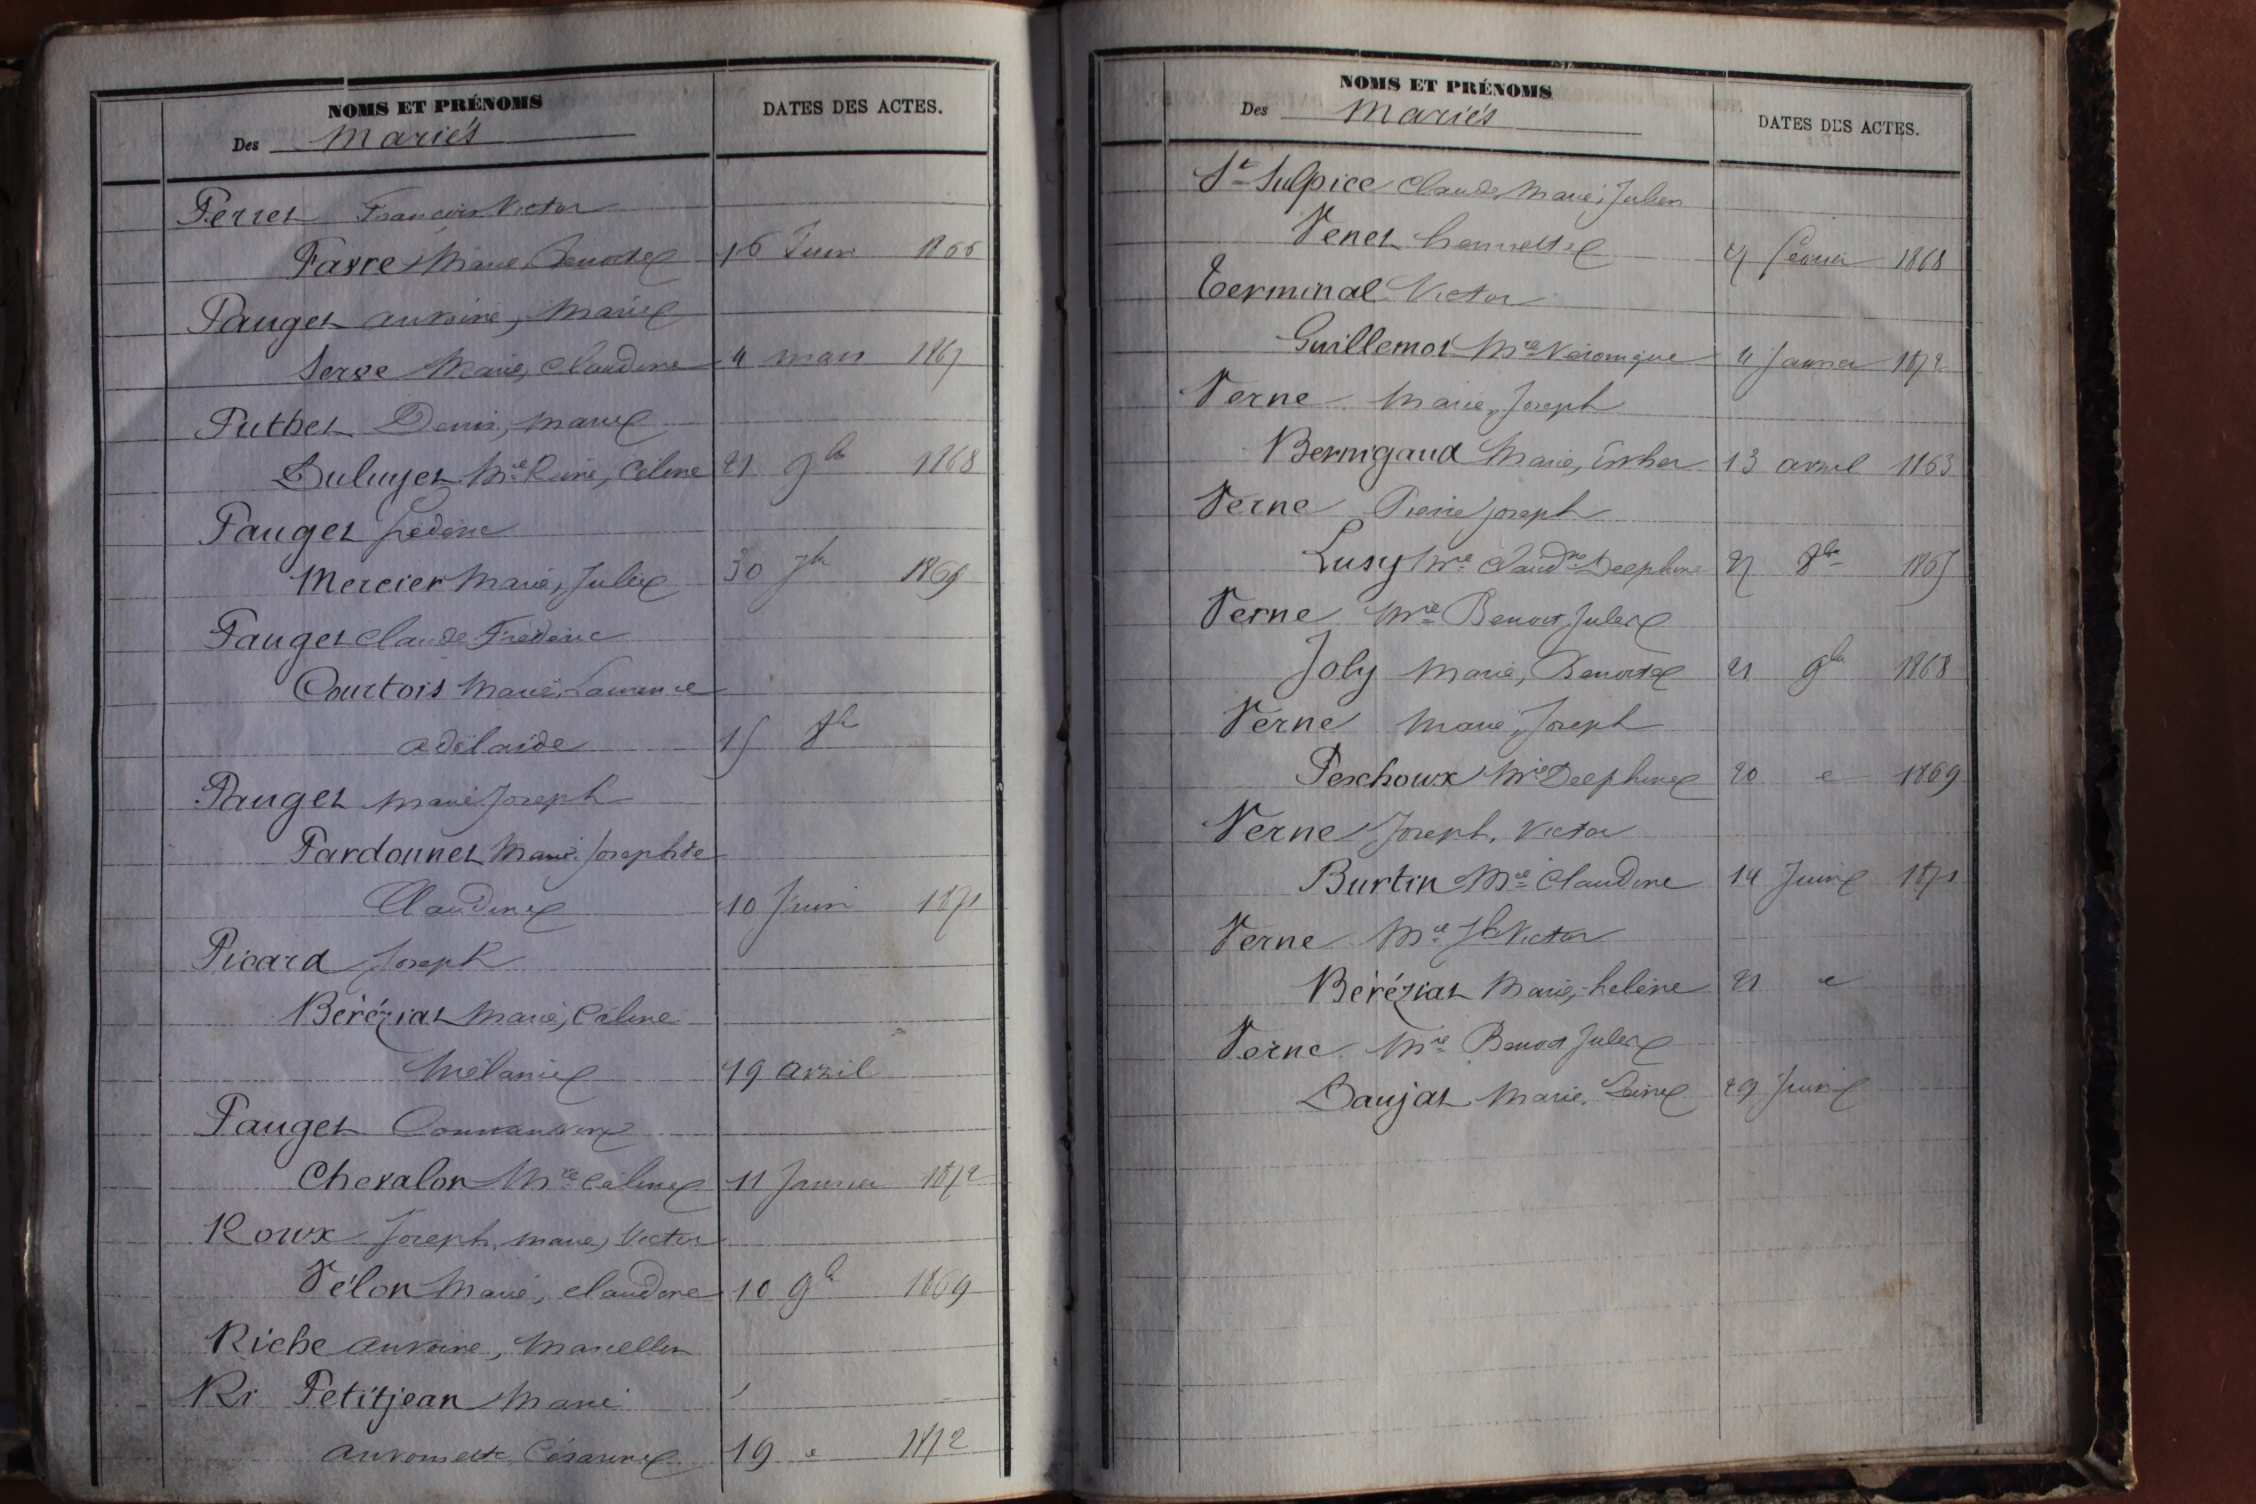 NOMS ET PRÉNOMS
DATES DES ACTES.
Des Mariés
Perret François Victor
Favre Marie, Benoite 16 Juin 1866
Pauget antoine, Marie
Serve Marie, Claudine 4 mars 1867
Puthet Denis, Marie
Duluyet Mie Reine, Céline 21 9bre 1868
Pauget Fréderic
Mercier Marie, Julie 30 7bre 1869
Pauget Claude Fréderic
Courtois Marie, Laurence
adélaïde 15 8bre
Pauget Marie Joseph
Pardonnet Marie Josephte
Claudine 10 Juin 1871
Picard Joseph
Béréziat Marie, Céline
Mélanie 19 avril
Pauget Constantin
Chevalon Mie Céline 11 Janvier 1872
Roux Joseph, marie, Victor
Vélon Marie, claudine 10 9bre 1869
Riche antoine, Marcellin
Ri Petitjean Marie
antoinette Césarine 19 " 1872
NOMS ET PRÉNOMS
DATES DES ACTES.
Des Mariés
St Sulpice Claude, Marie, Julien
Venet henriette 27 février 1868
Terminal Victor
Guillemot Mie Véronique 4 Janvier 1872
Verne Marie, Joseph
Bernigaud Marie, Esther 13 avril 1863
Verne Pierre Joseph
Lusy Mie Claudne Delphine 27 8bre 1865
Verne Mie Benoit Jules
Joly Marie, Benoite 21 9bre 1868
Verne Marie, Joseph
Peschoux Mie Delphine 20 " 1869
Verne Joseph, Victor
Burtin Mie Claudine 14 Juin 1871
Verne Mie Jh Victor
Béréziat Marie, hélène 21 "
Verne Mie Benoit Jules
Daujat Marie, 29 Juin